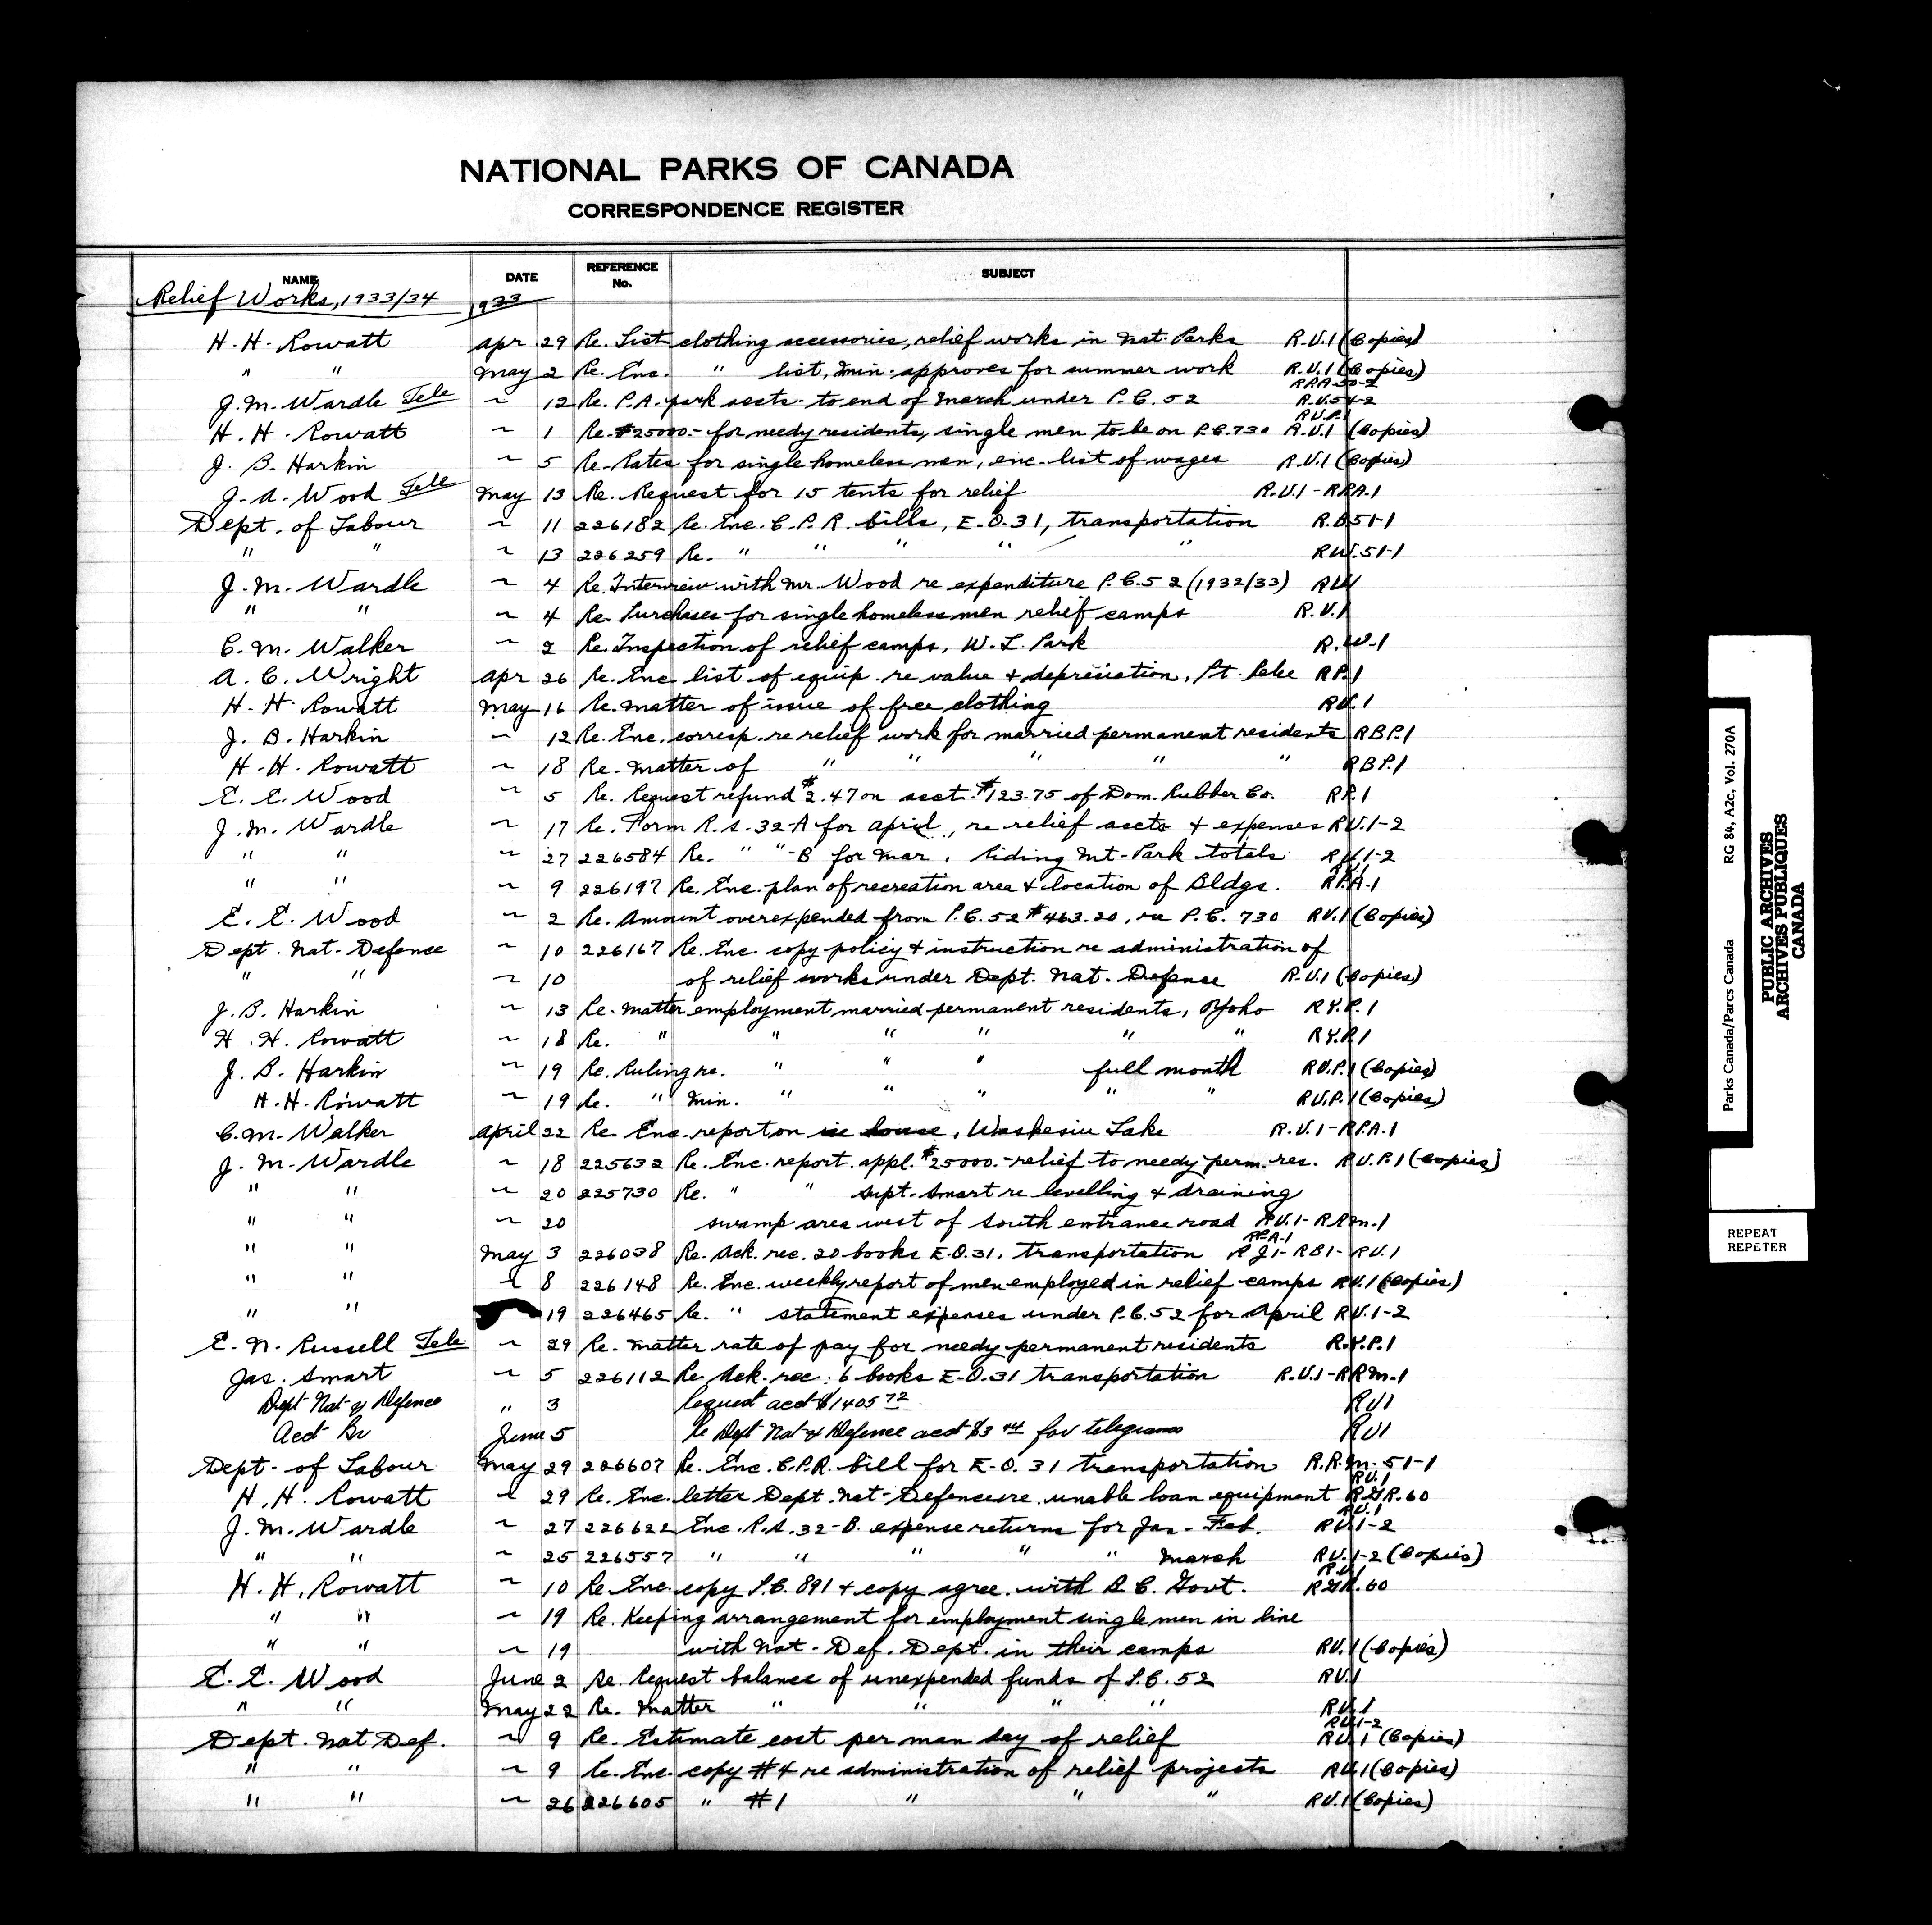 NATIONAL PARKS OF CANADA
CORRESPONDENCE REGISTER
NAME DATE REFERENCE No. SUBJECT
Relief Works, 1933/34 1933
H. H. Rowatt Apr 29 Re. List clothing accessories, relief works in Nat. Parks R.U.1 (Copies)
" " May 2 Re. Enc. " list, Min. approves for summer work R.U.1 (Copies)
J. M. Wardle Tele ~ 12 Re. P.A. park accts. to end of March under P.C. 52 RPA-50-2 R.U.54-2
H. H. Rowatt ~ 1 Re. $25000.- for needy residents, single men to be on P.C. 730 R.U.P.1 R.U.1 (Copies)
J. B. Harkin ~ 5 Re. Rates for single homeless men, enc. list of wages R.U.1 (Copies)
J. A. Wood Tele May 13 Re. Request for 15 tents for relief R.U.1 - RPA.1
Dept. of Labour ~ 11 226182 Re. Enc. C.P.R. bills, E.O. 31, transportation R.B51-1
" " ~ 13 226259 Re. " " " " " RW.51-1
J. M. Wardle ~ 4 Re. Interview with Mr. Wood re expenditure P.C. 52 (1932/33) RU1
" " ~ 4 Re. Purchases for single homeless men relief camps R.U.1
C. M. Walker ~ 2 Re. Inspection of relief camps, W. L. Park R.W.1
A. C. Wright Apr 26 Re. Enc list of equip. re value & depreciation, Pt. Pelee RP.1
H. H. Rowatt May 16 Re. matter of issue of free clothing RU.1
J. B. Harkin ~ 12 Re. Enc. corresp. re relief work for married permanent residents RBP.1
H. H. Rowatt ~ 18 Re. Matter of " " " " " RBP.1
E. E. Wood ~ 5 Re. Request refund $2.47 on acct. $123.75 of Dom. Rubber Co. RP.1
J. M. Wardle ~ 17 Re. Form R.S. 32-A for April, re relief accts & expenses RU.1-2
" " ~ 27 226584 Re. " "-B for Mar. Riding Mt. Park totals RU.1-2
" " ~ 9 226197 Re. Enc. plan of recreation area & location of Bldgs. RU.1 RPA-1
E. E. Wood ~ 2 Re. Amount overexpended from P.C. 52 $463.20, re P.C. 730 RU.1 (Copies)
Dept. Nat. Defence ~ 10 226167 Re. Enc. copy policy & instruction re administration of
" " ~ 10 of relief works under Dept. Nat. Defence R.U.1 (Copies)
J. B. Harkin ~ 13 Re. Matter employment married permanent residents, Yoho RY.P.1
H. H. Rowatt ~ 18 Re. " " " " " " RY.P.1
J. B. Harkin ~ 19 Re. Ruling re. " " " full month RU.P.1 (Copies)
H. H. Rowatt ~ 19 Re. " Min. " " " " " RU.P.1 (Copies)
C. M. Walker April 22 Re. Enc report on ice house, Waskesiu Lake R.U.1 - RPA.1
J. M. Wardle ~ 18 225632 Re. Enc. report appl. $25000.- relief to needy perm. res. RU.P.1 (Copies)
" " ~ 20 225730 Re. " " Supt. Smart re levelling & draining
" " ~ 20 swamp area west of South entrance road RU.1 - RRM.1
" " May 3 226038 Re. Ack. rec. 20 books E.O. 31, transportation RPA-1 RJ1 - RB1 - RU.1
" " ~ 8 226148 Re. Enc. weekly report of men employed in relief camps RU.1 (Copies)
" " 19 226465 Re. " statement expenses under P.C. 52 for April RU.1-2
E. N. Russell Tele ~ 29 Re. Matter rate of pay for needy permanent residents R.Y.P.1
Jas. Smart ~ 5 226112 Re Ack. rec. 6 books E.O. 31 transportation R.U.1 - RRM-1
Dept Nat'l Defence " 3 Request acct $1405 72 RU1
Acct Br June 5 Re Dept Nat'l Defence acct $3 44 for telegrams RU1
Dept. of Labour May 29 226607 Re. Enc. C.P.R. bill for E.O. 31 transportation R.R.M.-51-1
H. H. Rowatt ~ 29 Re. Enc. letter Dept. Nat. Defence re. unable loan equipment RU.1 RGR.60
J. M. Wardle ~ 27 226622 Enc. R.S. 32-B. expense returns for Jan - Feb. RU.1 RU.1-2
" " ~ 25 226557 " " " " " March RU.1-2 (Copies)
H. H. Rowatt ~ 10 Re. Enc. copy P.C. 891 & copy agree. with B.C. Govt. RU.1 RGR.60
" " ~ 19 Re. Keeping arrangement for employment single men in line
" " ~ 19 with Nat. Def. Dept. in their camps RU.1 (Copies)
E. E. Wood June 2 Re. Request balance of unexpended funds of P.C. 52 RU.1
" " May 22 Re. Matter " " " " RU.1
Dept. Nat Def. ~ 9 Re. Estimate cost per man day of relief RU.1-2 RU.1 (Copies)
" " ~ 9 Re. Enc. copy #4 re administration of relief projects RU.1 (Copies)
" " ~ 26 226605 " #1 " " " RU.1 (Copies)
Parks Canada/Parcs Canada RG 84, A2c, Vol. 270A
PUBLIC ARCHIVES
ARCHIVES PUBLIQUES
CANADA
REPEAT
REPÉTER